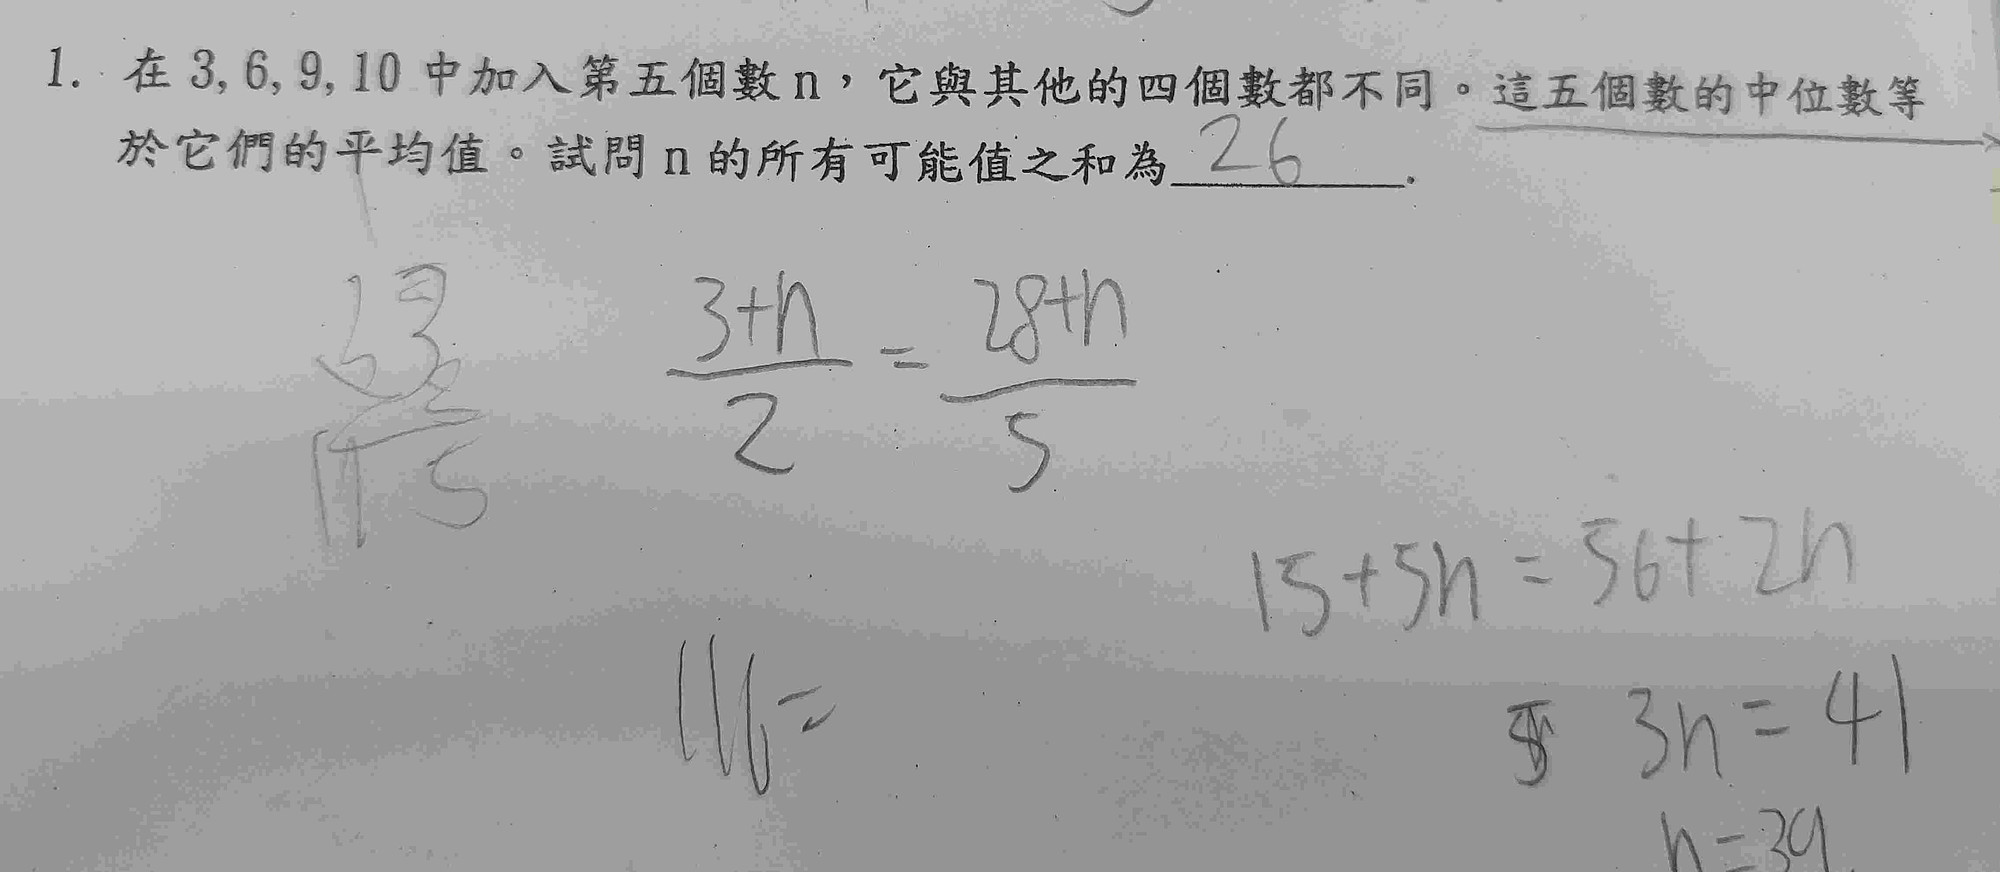 1. 在 3, 6, 9, 10 中加入第五個數 n，它與其他的四個數都不同。這五個數的中位數等
於它們的平均值。試問 n 的所有可能值之和為 26 .
3+n / 2 = 28+n / 5
15+5n = 56+2n
116=
3n = 41
n=39